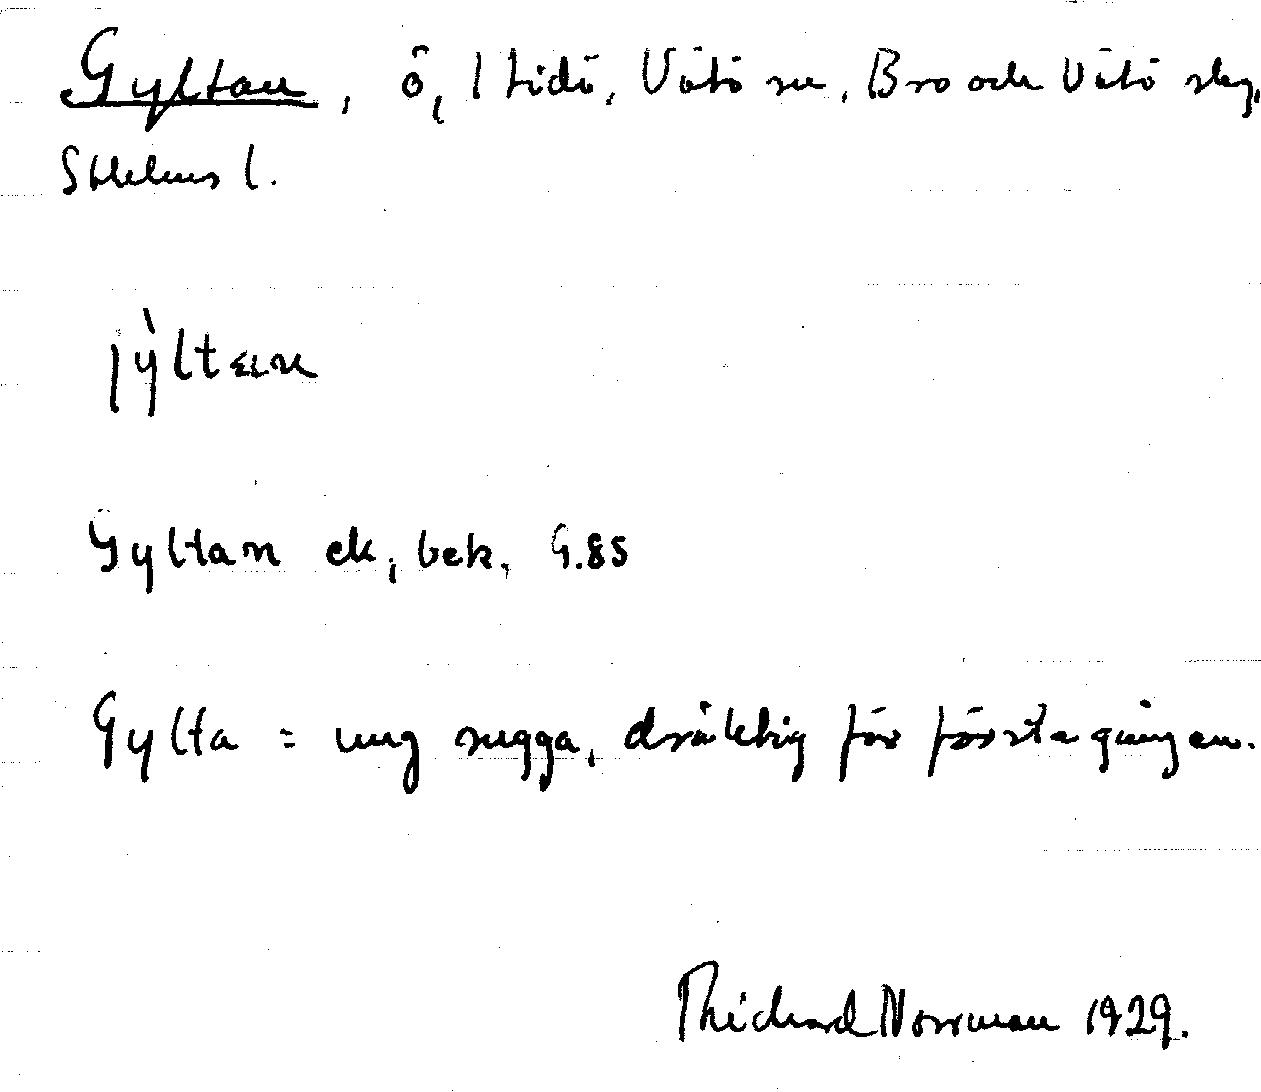 Gyltan, ö, 1 Lidö, Vätö sn, Bro och Vätö skg,
Sthlms l.
jỳltan
Gyltan ek, bek, G.85
Gylta = ung sugga, dräktig för första gången.
Richard Norrman 1929.